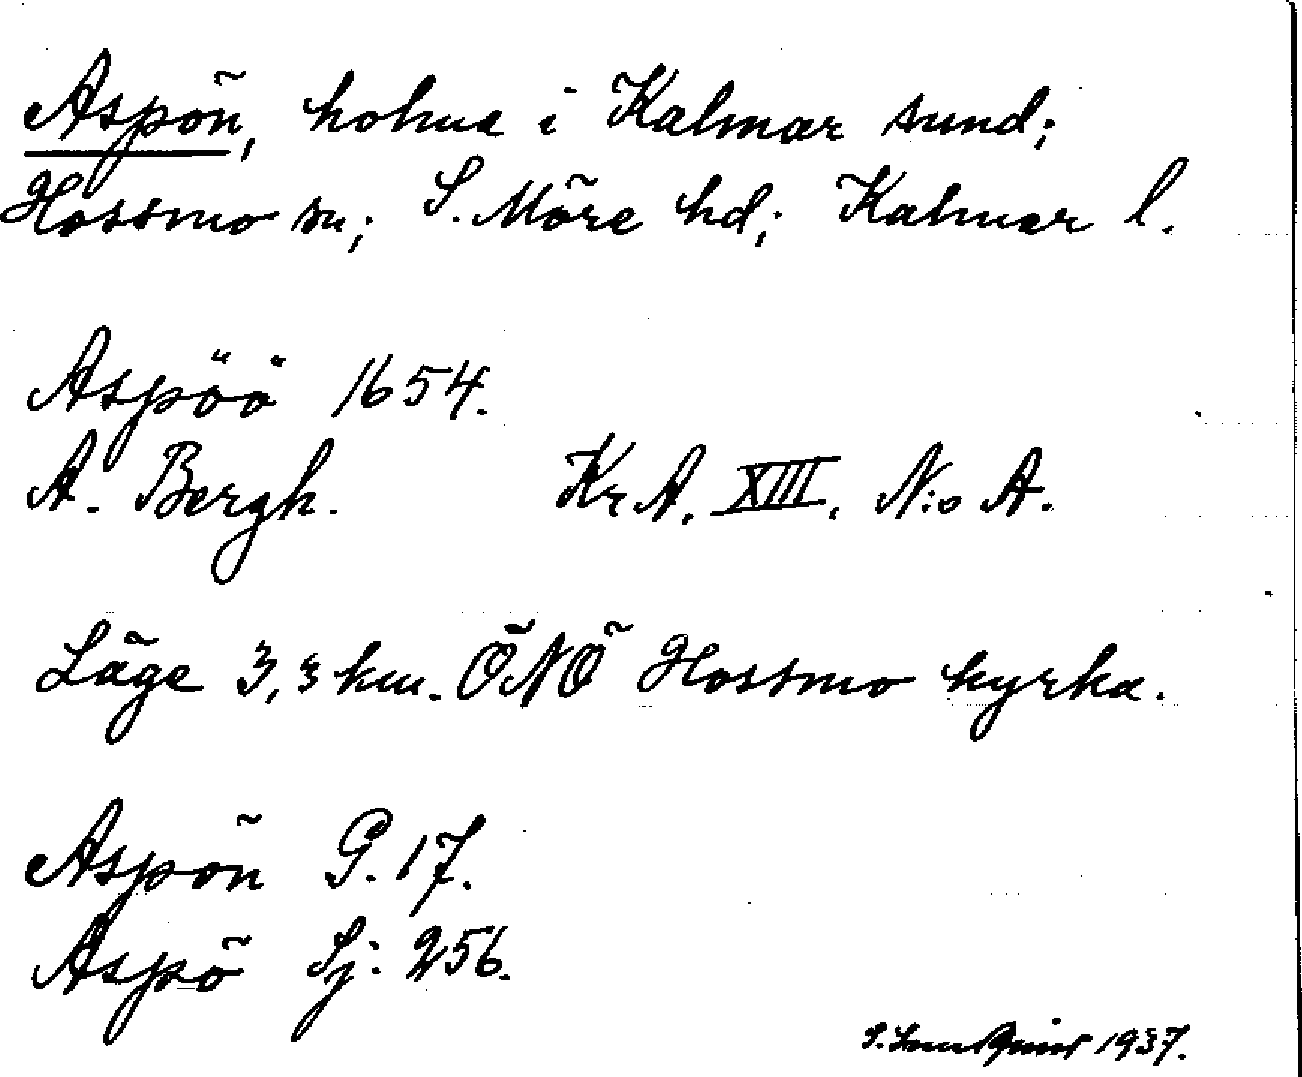 Aspön, holme i Kalmar sund;
Hossmo sn; S. Möre hd; Kalmar l.
Aspöö 1654.
A. Bergh. Kr A. XIII. N:o A.
Läge 3,3 km. ÖNÖ Hossmo kyrka.
Aspön G. 17.
Aspö Sj: 256.
S. 1937.